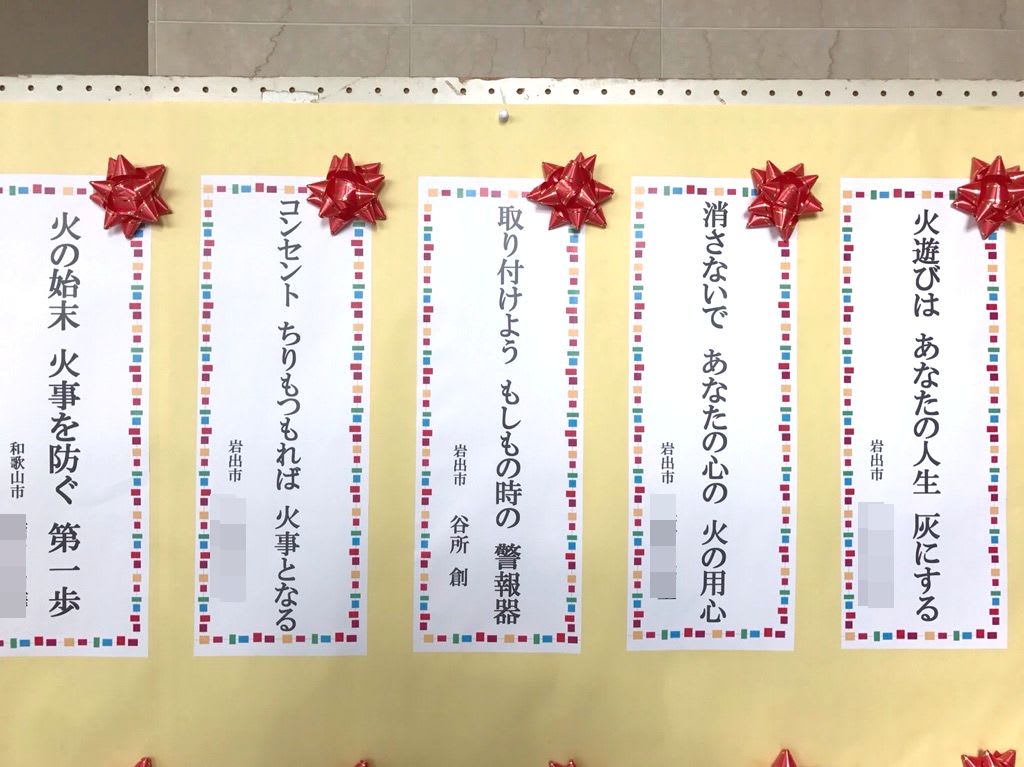 火遊びは あなたの人生 灰にする
岩出市
消さないで あなたの心の 火の用心
岩出市
取り付けよう もしもの時の 警報器
岩出市 谷所 創
コンセント ちりもつもれば 火事となる
岩出市
火の始末 火事を防ぐ 第一歩
和歌山市